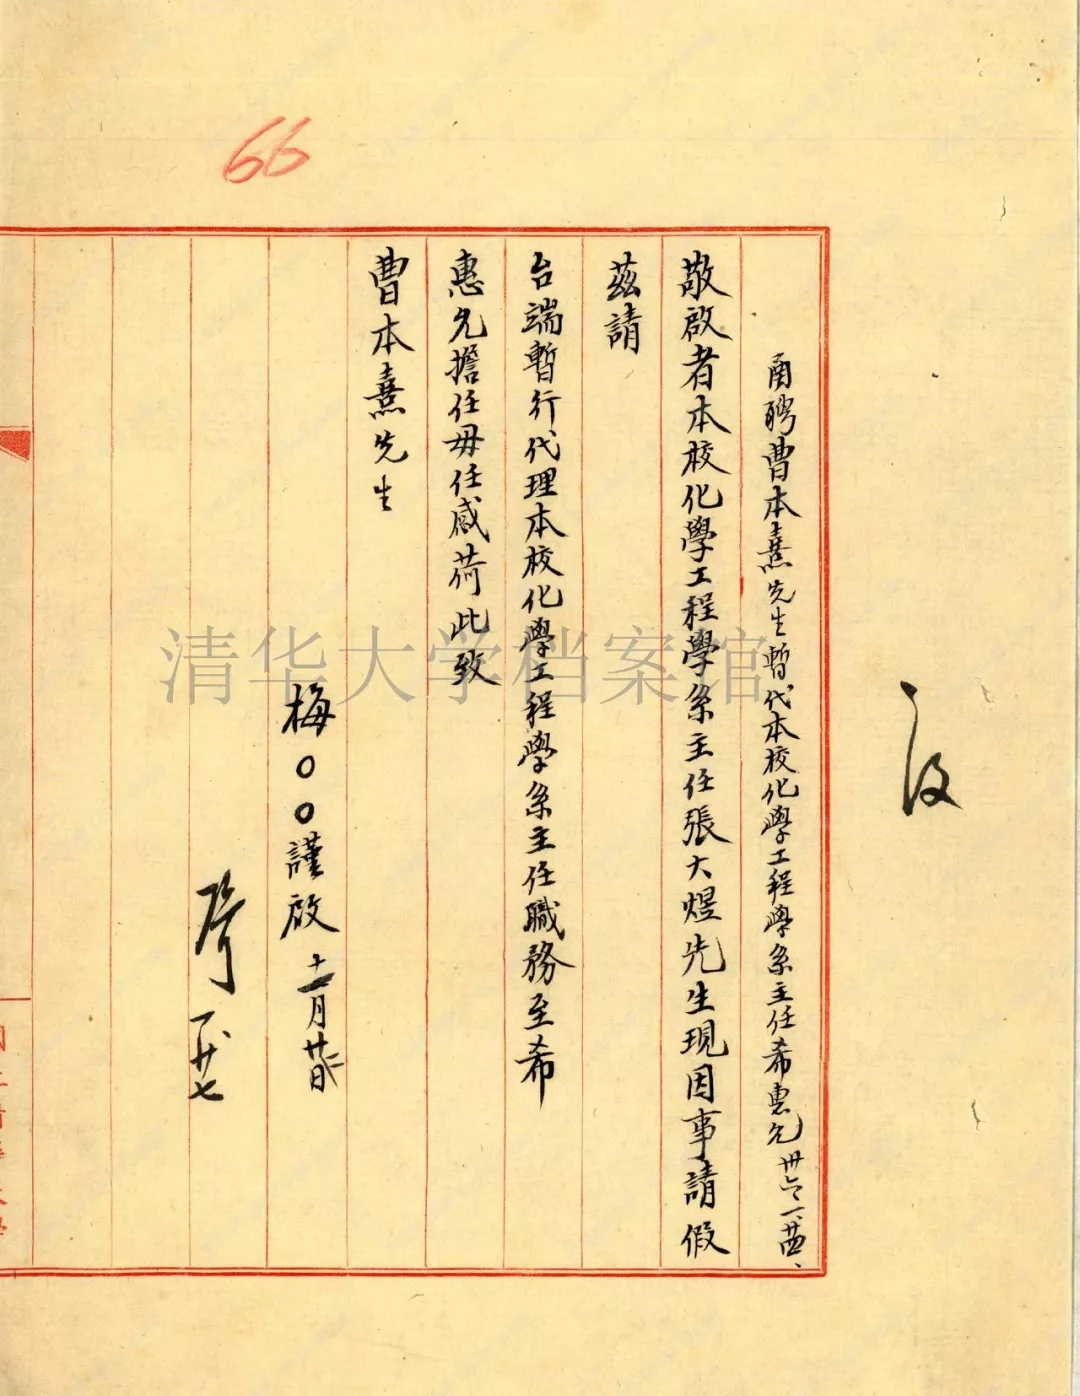 66
函聘曹本熹先生暫代本校化學工程學系主任希惠允 卅六、一、廿四、
敬啟者本校化學工程學系主任張大煜先生現因事請假
茲請
台端暫行代理本校化學工程學系主任職務至希
惠允擔任毋任感荷此致
曹本熹先生
梅〇〇謹啟 月 日
一、廿七
國立清華大學
清华大学档案馆